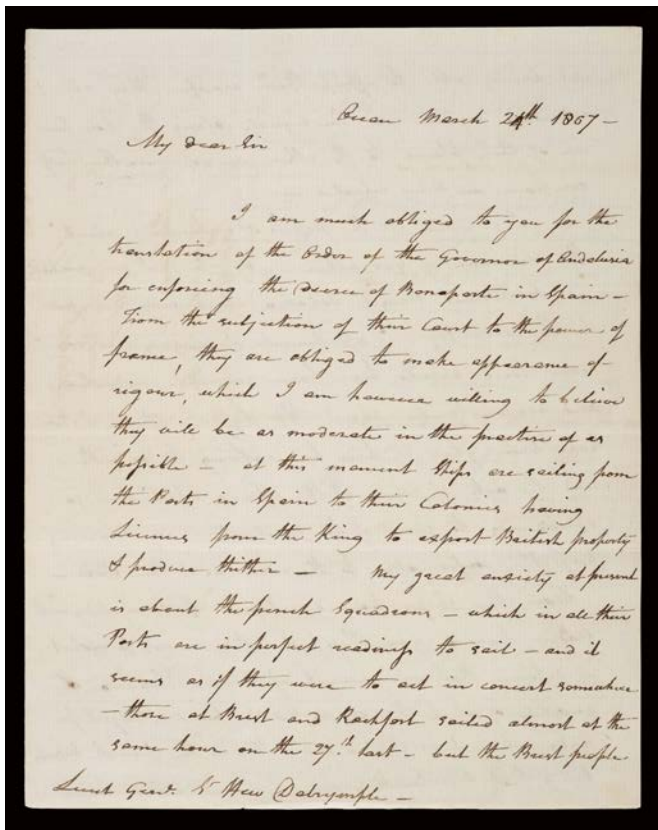 Ocean March 24th. 1807 -
My dear Sir
I am much obliged to you for the
translation of the Order of the Governor of Andalusia
for enforcing the Decree of Bonaparte in Spain -
From the subjection of their Court to the power of
france, they are obliged to make appearance of
rigour, which I am however willing to believe
they will be as moderate in the practice of as
possible - at this moment Ships are sailing from
the Ports in Spain to their Colonies having
Licences from the King to export British property
& produce thither - - My great anxiety at present
is about the french Squadrons - which in all their
Ports are in perfect readiness to sail - and it
seems as if they were to act in concert somewhere
- those at Brest and Rochfort sailed almost at the
same hour on the 27th. last - but the Brest people
Lieut Genl. Sr Hew Dalrymple -